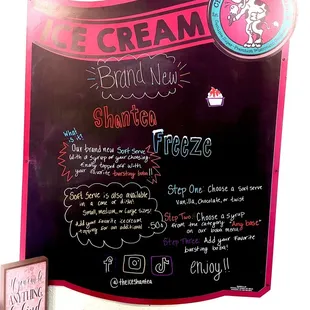 ICE CREAM
Brand New
Shantea
Freeze
What
is it?
Our brand new Soft Serve
with a syrup of your choosing
finally topped off with
your favorite bursting boba!!
Soft Serve is also available
in a cone or dish.
Small, medium, or large sizes!
Add your favorite icecream
topping for an additional .50¢
Step One: Choose a Soft Serve
Vanilla, Chocolate, or twist
Step Two: Choose a syrup
from the category "Any base"
on our boba menu
Step Three: Add your favorite
bursting boba!
enjoy!!
@theiceshantea
ANYTHING